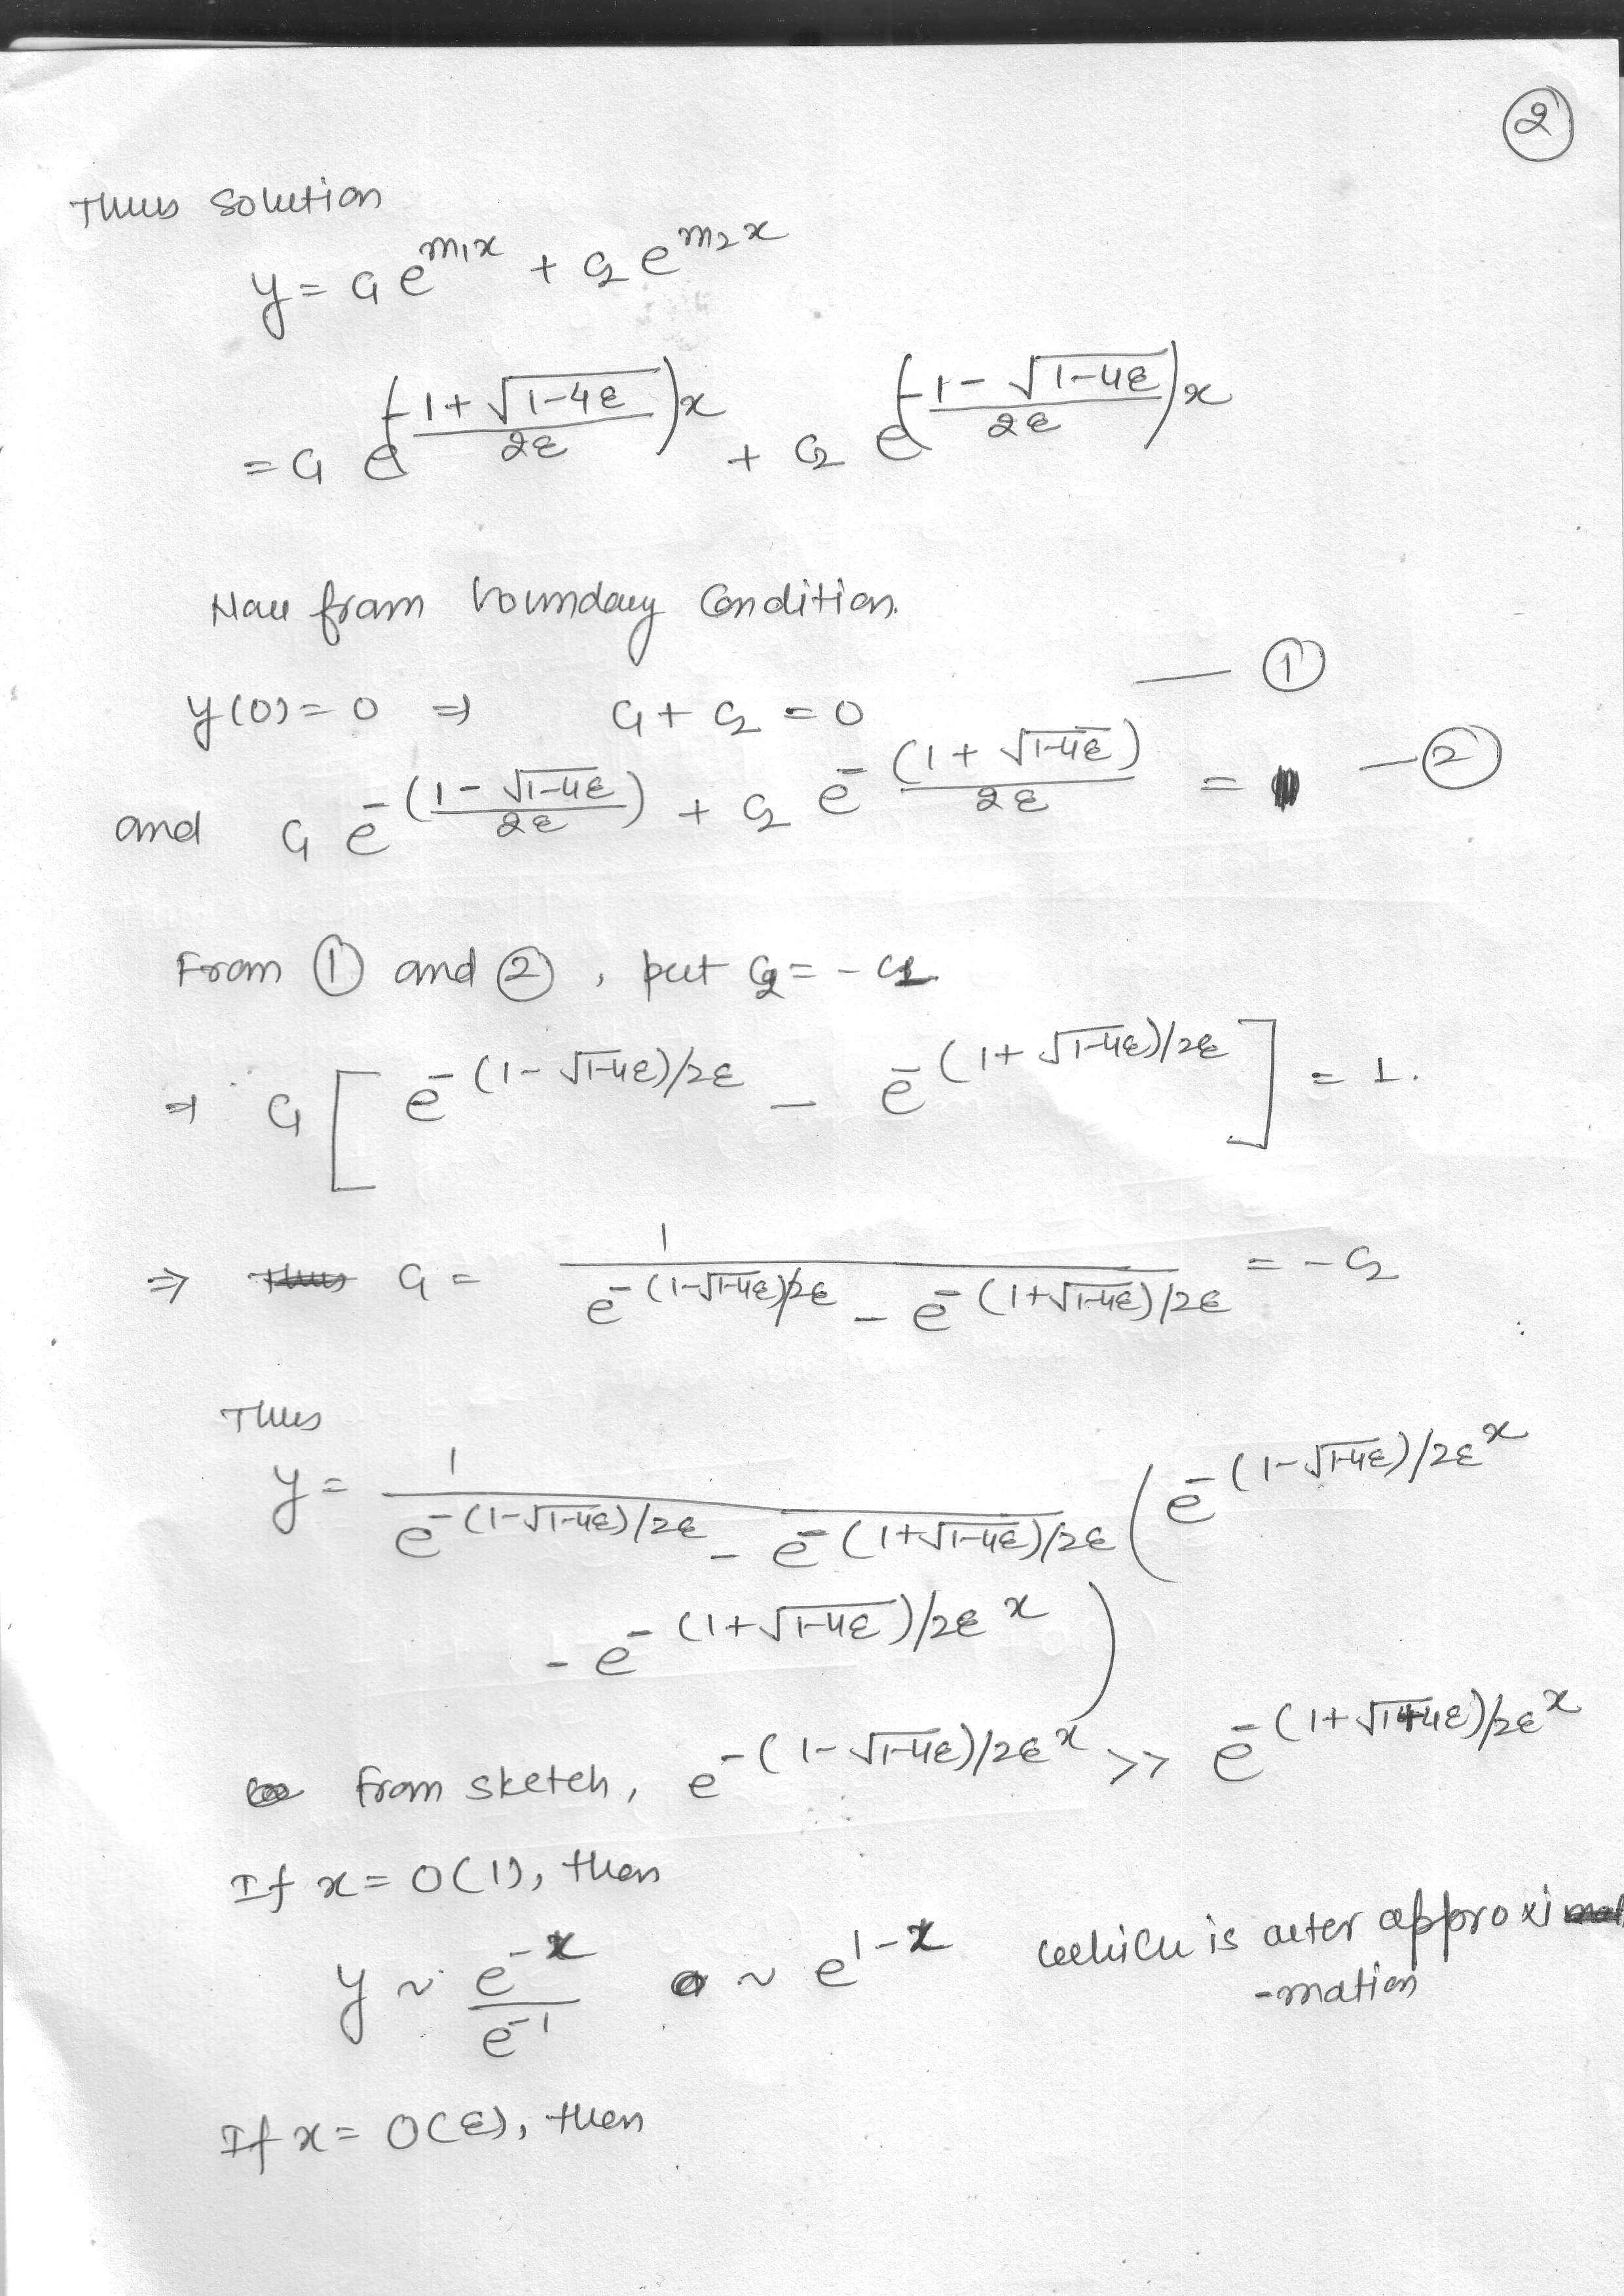 ②
Thus solution
y = C₁ e^{m₁x} + C₂ e^{m₂x}
= C₁ e^{(-1+√(1-4ε)/2ε)x} + C₂ e^{(-1-√(1-4ε)/2ε)x}
Now from boundary condition.
y(0) = 0 ⇒ C₁ + C₂ = 0 — ①
and C₁ e^{-(1-√(1-4ε)/2ε)} + C₂ e^{-(1+√(1-4ε))/2ε} = — ②
From ① and ②, put C₂ = -C₁
⇒ C₁ [ e^{-(1-√(1-4ε))/2ε} - e^{-(1+√(1-4ε))/2ε} ] = 1.
⇒ Thus C₁ = 1 / (e^{-(1-√(1-4ε))/2ε} - e^{-(1+√(1-4ε))/2ε}) = -C₂
Thus
y = 1 / (e^{-(1-√(1-4ε))/2ε} - e^{-(1+√(1-4ε))/2ε}) ( e^{-(1-√(1-4ε))/2ε x}
- e^{-(1+√(1-4ε))/2ε x} )
From sketch, e^{-(1-√(1-4ε))/2ε x} >> e^{-(1+√(1+4ε))/2ε x}
If x = O(1), then
y ~ e^{-x} / e^{-1} ~ e^{1-x} which is outer approxi
-mation
If x = O(ε), then